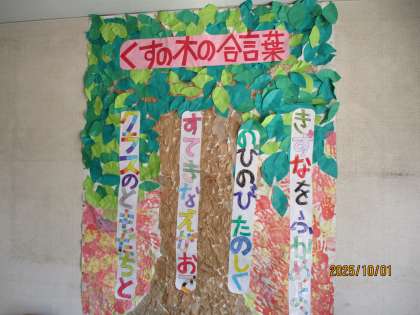 くすの木の合言葉
クラスのともだちと
すてきなえがお
のびのびたのしく
きずなをふかめよう
2025/10/01